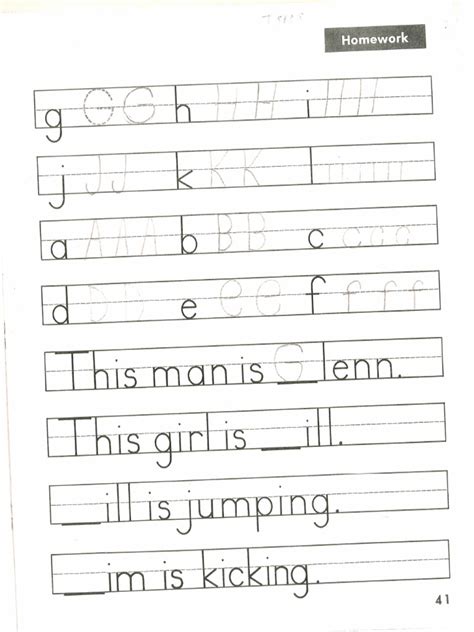 Homework
g G G h H H i I I I I
j J J k K K l
a A A A b B B c c c c
d D D e e e f f f f
This man is G_lenn.
This girl is __ill.
__ill is jumping.
__im is kicking.
41